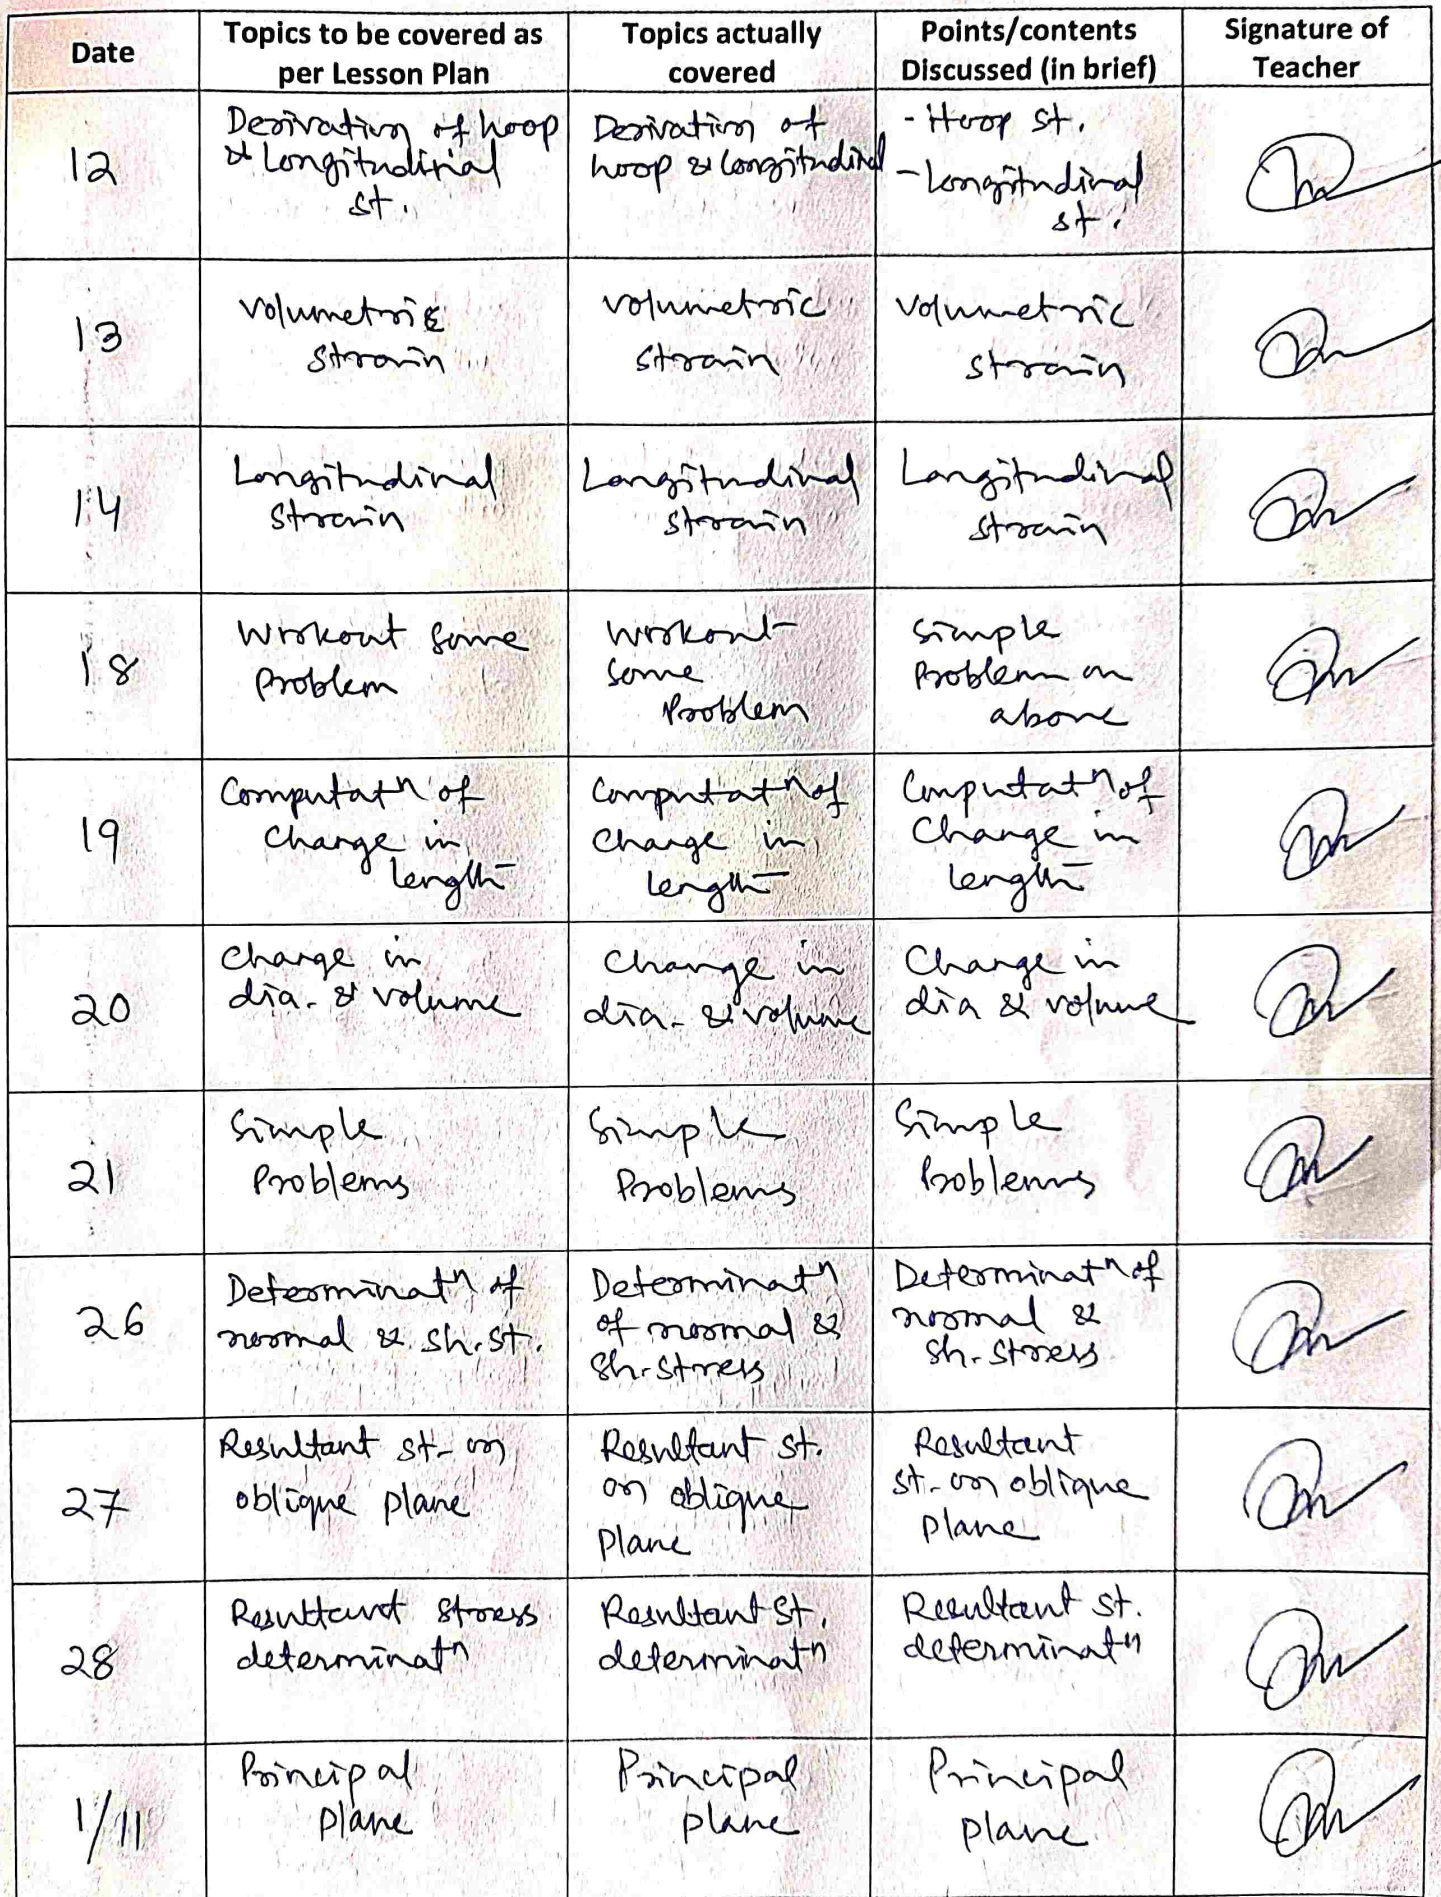 Date
Topics to be covered as
per Lesson Plan
Topics actually
covered
Points/contents
Discussed (in brief)
Signature of
Teacher
12
Derivation of hoop
& Longitudinal
st.
Derivation of
hoop & longitudinal
- Hoop st.
- Longitudinal
st.
13
volumetric
strain
volumetric
strain
volumetric
strain
14
Longitudinal
strain
Longitudinal
strain
Longitudinal
strain
18
Workout some
problem
Workout
some
problem
simple
problem on
above
19
Computatn of
change in
length
Computatn of
change in
length
Computatn of
change in
length
20
change in
dia. & volume
change in
dia. & volume
change in
dia & volume
21
Simple
Problems
Simple
Problems
Simple
Problems
26
Determinatn of
normal & sh. st.
Determinatn
of normal &
sh. stress
Determinatn of
normal &
sh. stress
27
Resultant st. on
oblique plane
Resultant st.
on oblique
plane
Resultant
st. on oblique
plane
28
Resultant stress
determinatn
Resultant st.
determinatn
Resultant st.
determinatn
1/11
Principal
plane
Principal
plane
Principal
plane